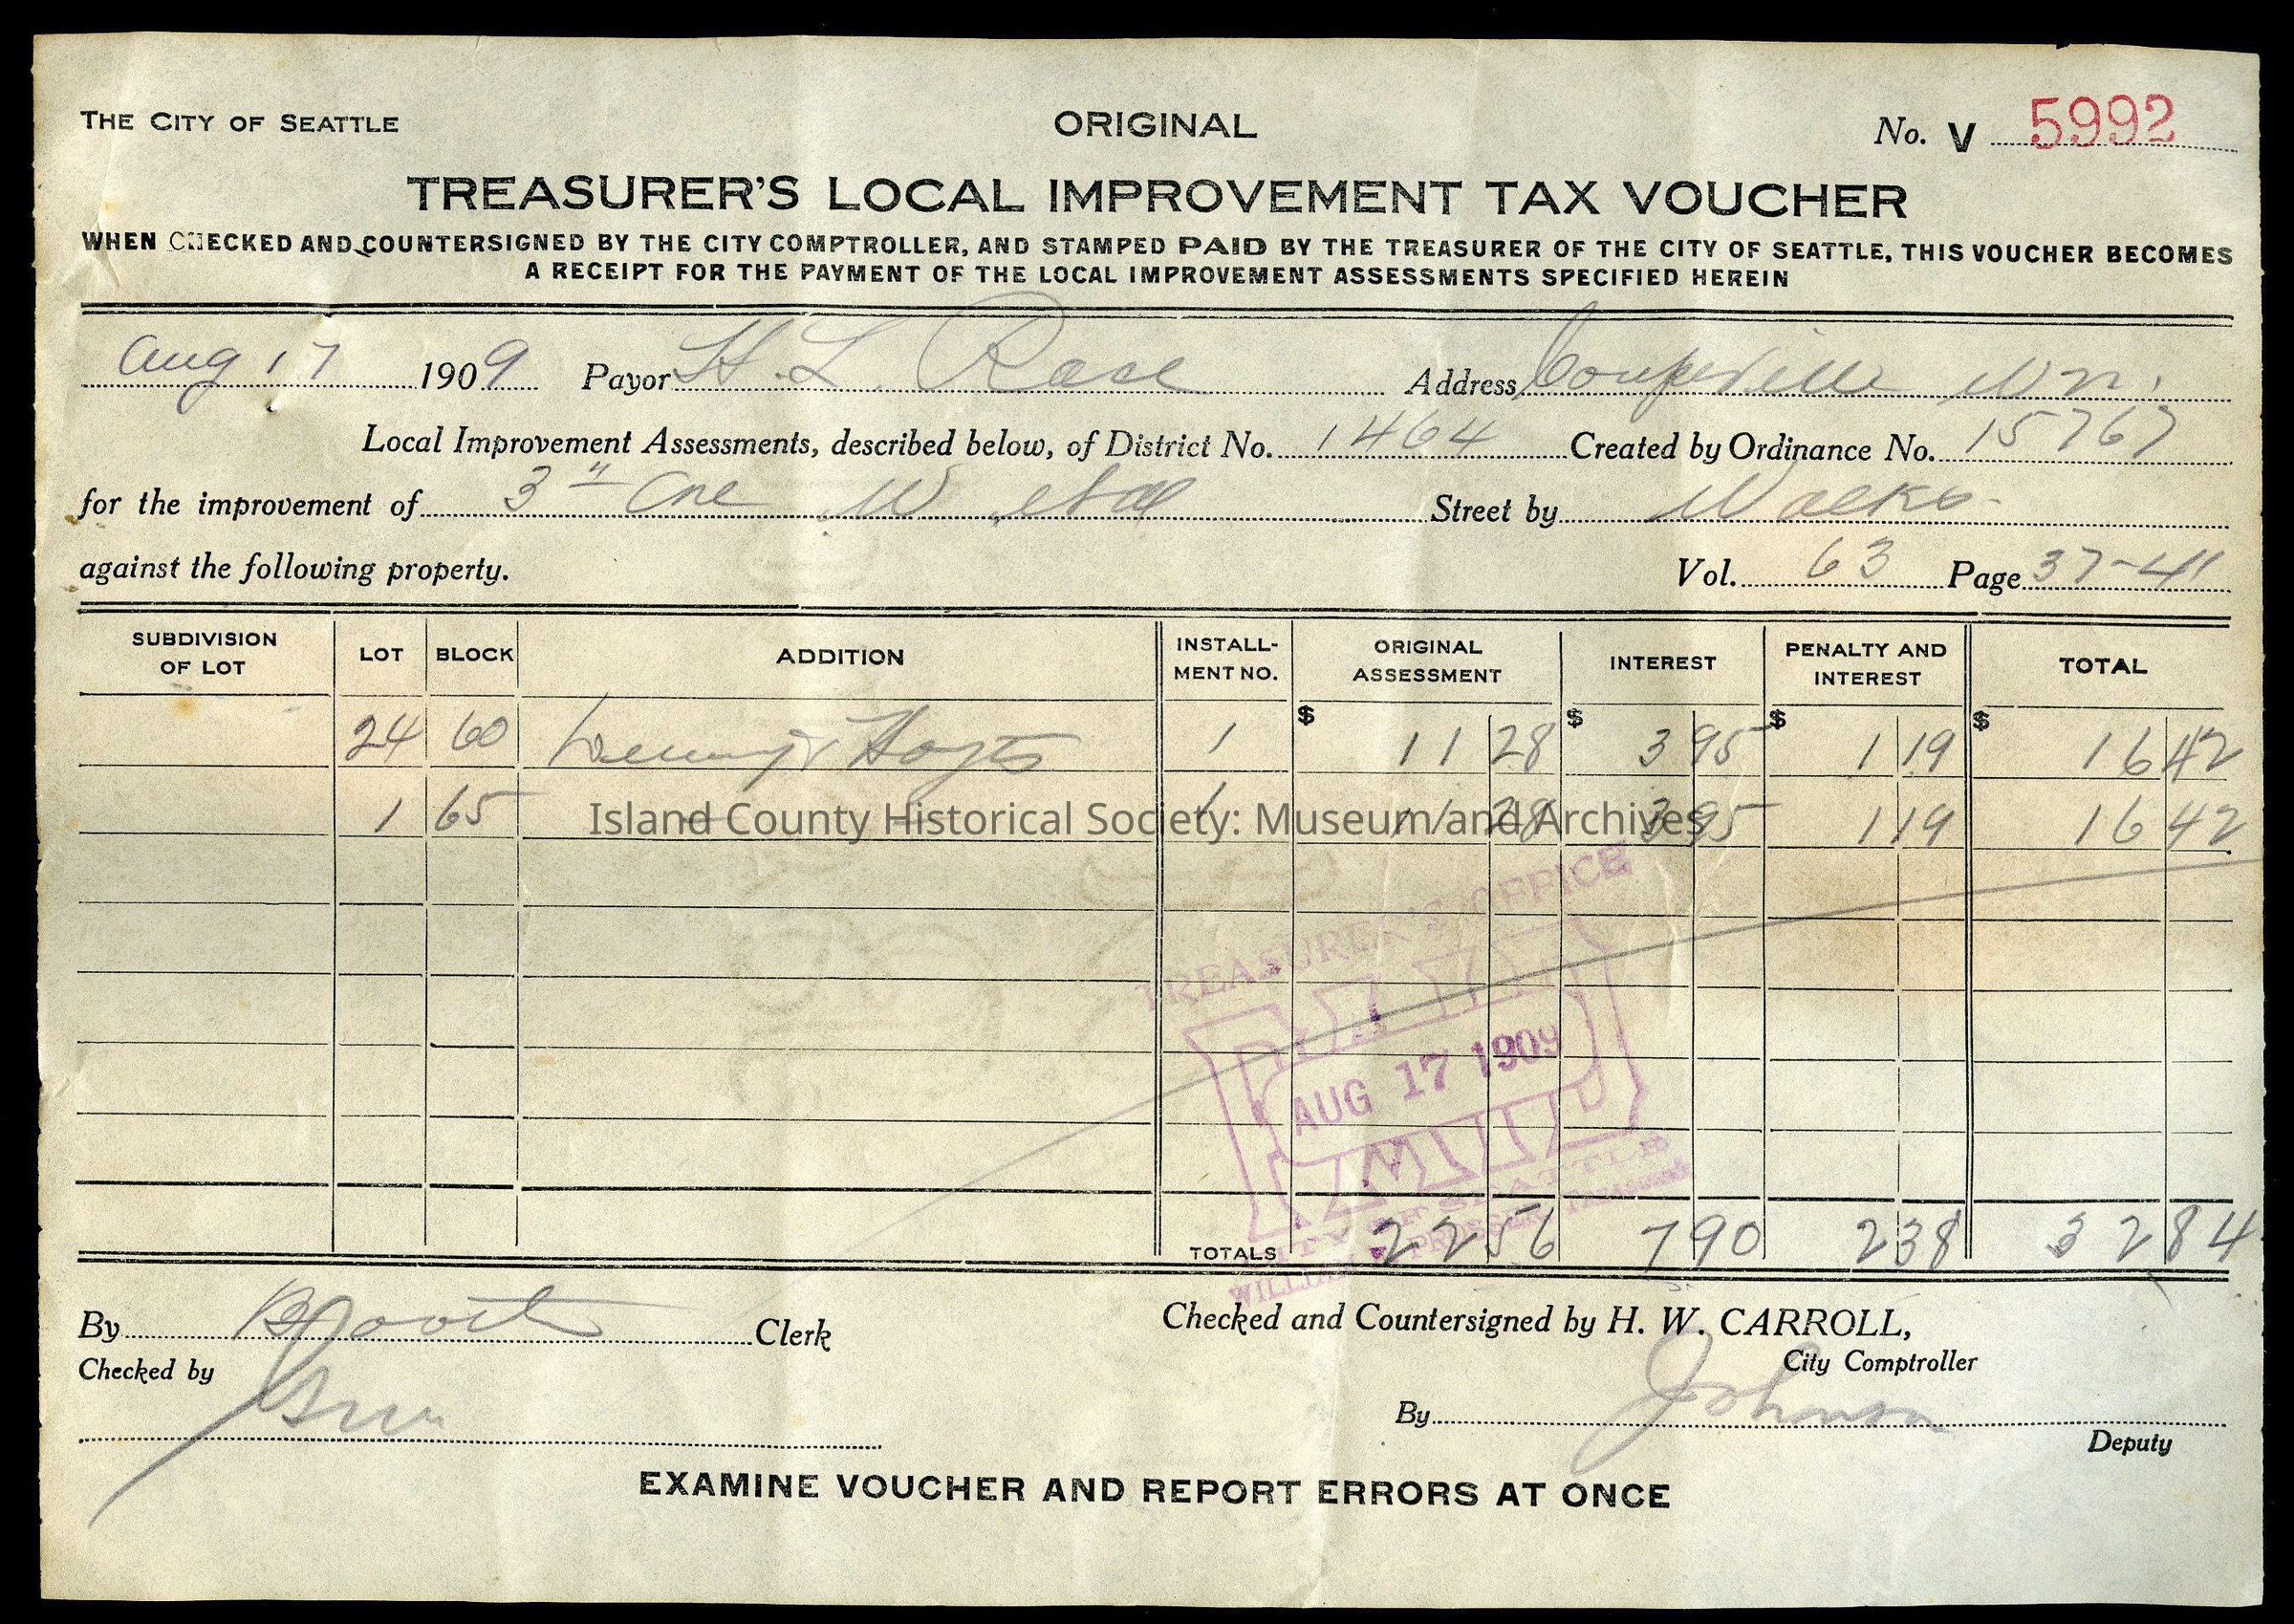 THE CITY OF SEATTLE ORIGINAL No. V 5992
TREASURER'S LOCAL IMPROVEMENT TAX VOUCHER
WHEN CHECKED AND COUNTERSIGNED BY THE CITY COMPTROLLER, AND STAMPED PAID BY THE TREASURER OF THE CITY OF SEATTLE, THIS VOUCHER BECOMES
A RECEIPT FOR THE PAYMENT OF THE LOCAL IMPROVEMENT ASSESSMENTS SPECIFIED HEREIN
Aug 17 1909 Payor H. L. Address Coupeville Wn.
Local Improvement Assessments, described below, of District No. 1464 Created by Ordinance No. 15767
for the improvement of 3" Ave W. et al Street by Walks
against the following property. Vol. 63 Page 37-41
SUBDIVISION OF LOT LOT BLOCK ADDITION INSTALL-MENT NO. ORIGINAL ASSESSMENT INTEREST PENALTY AND INTEREST TOTAL
24 60 Hoyts 1 $ 11 28 $ 3 95 $ 1 19 $ 16 42
1 65 1 11 28 3 95 1 19 16 42
Island County Historical Society: Museum and Archives
TREASURER'S OFFICE
PAID
AUG 17 1909
CITY OF SEATTLE
WILLIAM PROSSER, TREASURER
TOTALS 22 56 7 90 2 38 32 84
By Clerk Checked and Countersigned by H. W. CARROLL,
City Comptroller
Checked by
By Johnson
Deputy
EXAMINE VOUCHER AND REPORT ERRORS AT ONCE